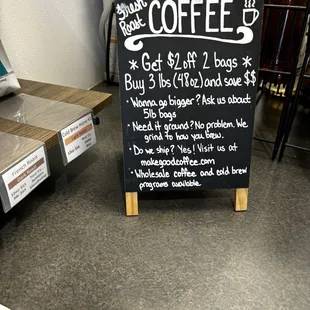 Fresh
Roast
COFFEE
* Get $2 off 2 bags *
Buy 3 lbs (48oz) and save $$
• Wanna go bigger? Ask us about
5lb bags
• Need it ground? No problem. We
grind to how you brew.
• Do we ship? Yes! Visit us at
makegoodcoffee.com
• Wholesale coffee and cold brew
programs available.
Cold Brew
French Roast